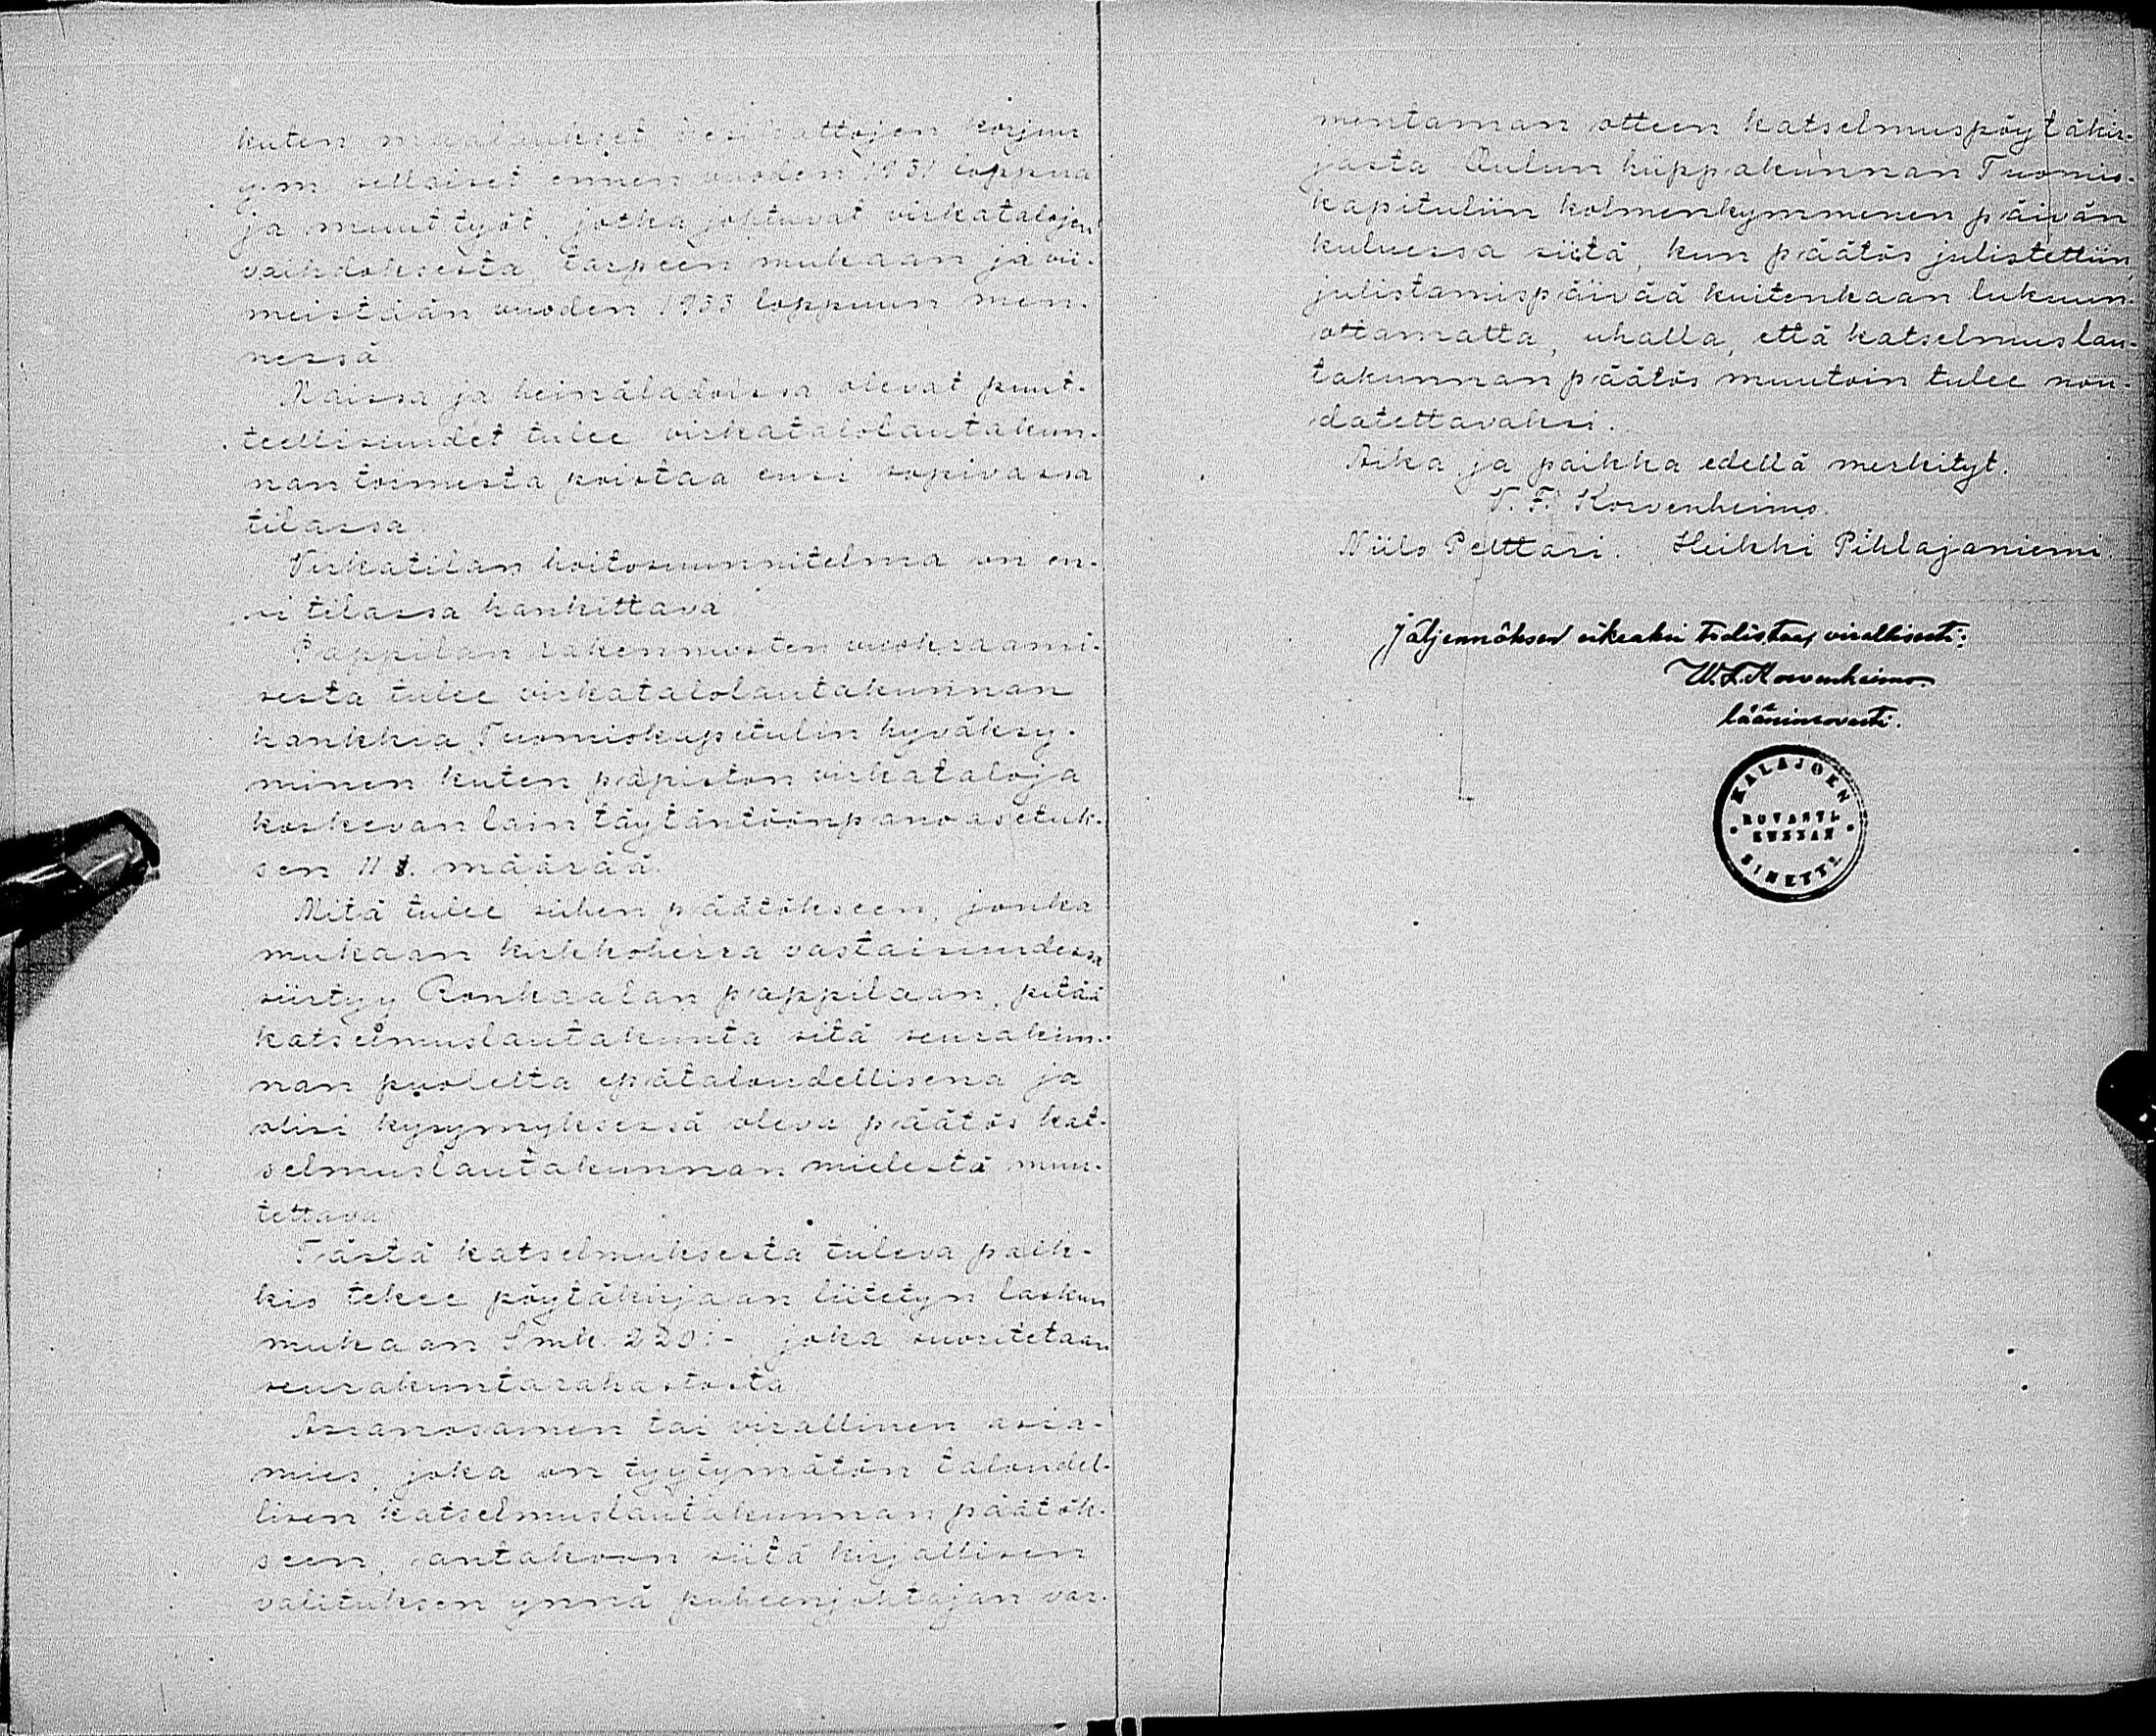 kuten maalaukset kesikattojen korjuu
y.m. sellaiset ennen vuoden 1931 loppua
ja muut työt, jotka johtuvat virkatalojen
vaihdoksesta, tarpeen mukaan ja vii-
meistään vuoden 1933 loppuun men-
nessä.
Maissa ja heinäladoissa olevat puut-
teellisuudet tulee virkatalolautakun-
nan toimesta poistaa ensi sopivassa
tilassa.
Virkatilan hoitosuunnitelma on en-
si tilassa hankittava.
Pappilan rakennusten vuokraami-
sesta tulee virkatalolautakunnan
hankkia Tuomiokapitulin hyväksy-
minen kuten papiston virkataloja
koskevan lain täytäntöönpanoasetuk-
sen 11 §. määrää.
Mitä tulee siihen päätökseen, jonka
mukaan kirkkoherra vastaisuudessa
siirtyy Ronkaalan pappilaan, pitää
katselmuslautakunta sitä seurakun-
nan puolelta epätaloudellisena ja
olisi kysymyksessä oleva päätös kat-
selmuslautakunnan mielestä muu-
tettava.
Tästä katselmuksesta tuleva palk-
kio tekee pöytäkirjaan liitetyn laskun
mukaan Smk. 220:- joka suoritetaan
seurakuntarahastosta.
Asianosainen tai virallinen asia-
mies, joka on tyytymätön taloudel-
lisen katselmuslautakunnan päätök-
seen, antakoon siitä kirjallisen
valituksen ynnä puheenjohtajan var-
mentaman otteen katselmuspöytäkir-
jasta Oulun hiippakunnan Tuomio-
kapituliin kolmenkymmenen päivän
kuluessa siitä, kun päätös julistettiin,
julistamispäivää kuitenkaan lukuun-
ottamatta, uhalla, että katselmuslau-
takunnan päätös muutoin tulee nou-
datettavaksi.
Aika ja paikka edellä merkityt.
V. F. Korvenheimo.
Niilo Pelttari. Heikki Pihlajaniemi.
Jäljennöksen oikeaksi todistaa, virallisesti:
W. F. Korvenheimo
lääninrovasti.
KALAJOEN
ROVASTI
KUNNAN
SINETTI